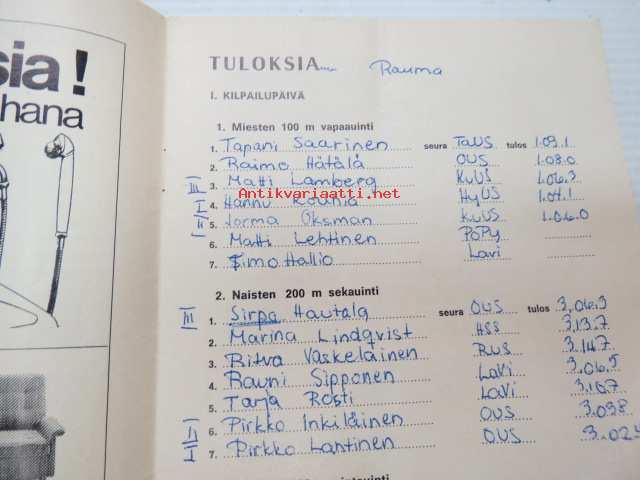 sia!
hana
TULOKSIA..... Rauma
I. KILPAILUPÄIVÄ
1. Miesten 100 m vapaauinti
1. Tapani Saarinen seura TaUS tulos 1.09.1
2. Raimo Hätälä OUS 1.08.0
III 3. Matti Lamberg KuUS 1.06.3
Antikvariaatti.net
I 4. Hannu Rounia HyUS 1.01.1
II 5. Jorma Oksman KuUS 1.06.0
6. Matti Lehtinen PoPy
7. Simo Hallio Lavi
2. Naisten 200 m sekauinti
III 1. Sirpa Hautala seura OUS tulos 3.06.3
2. Marina Lindqvist HSS 3.13.7
3. Ritva Väskeläinen RUS 3.14.7
4. Rauni Sipponen LaVi 3.06.5
5. Tarja Rosti LaVi 3.10.7
II 6. Pirkko Inkiläinen OUS 3.03.8
I 7. Pirkko Lahtinen OUS 3.02.4